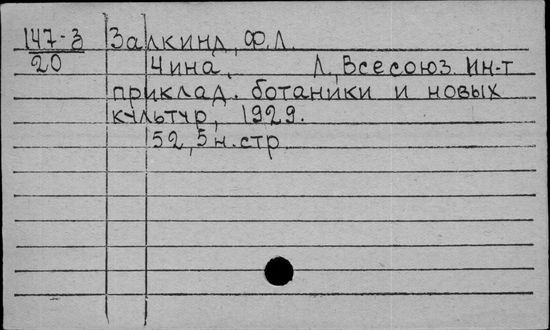 147-3 Залкинд, Ф.Л.
20 Чина, Л., Всесоюз. Ин-т
приклад. ботаники и новых
культур, 1929.
52, 5 н. стр.